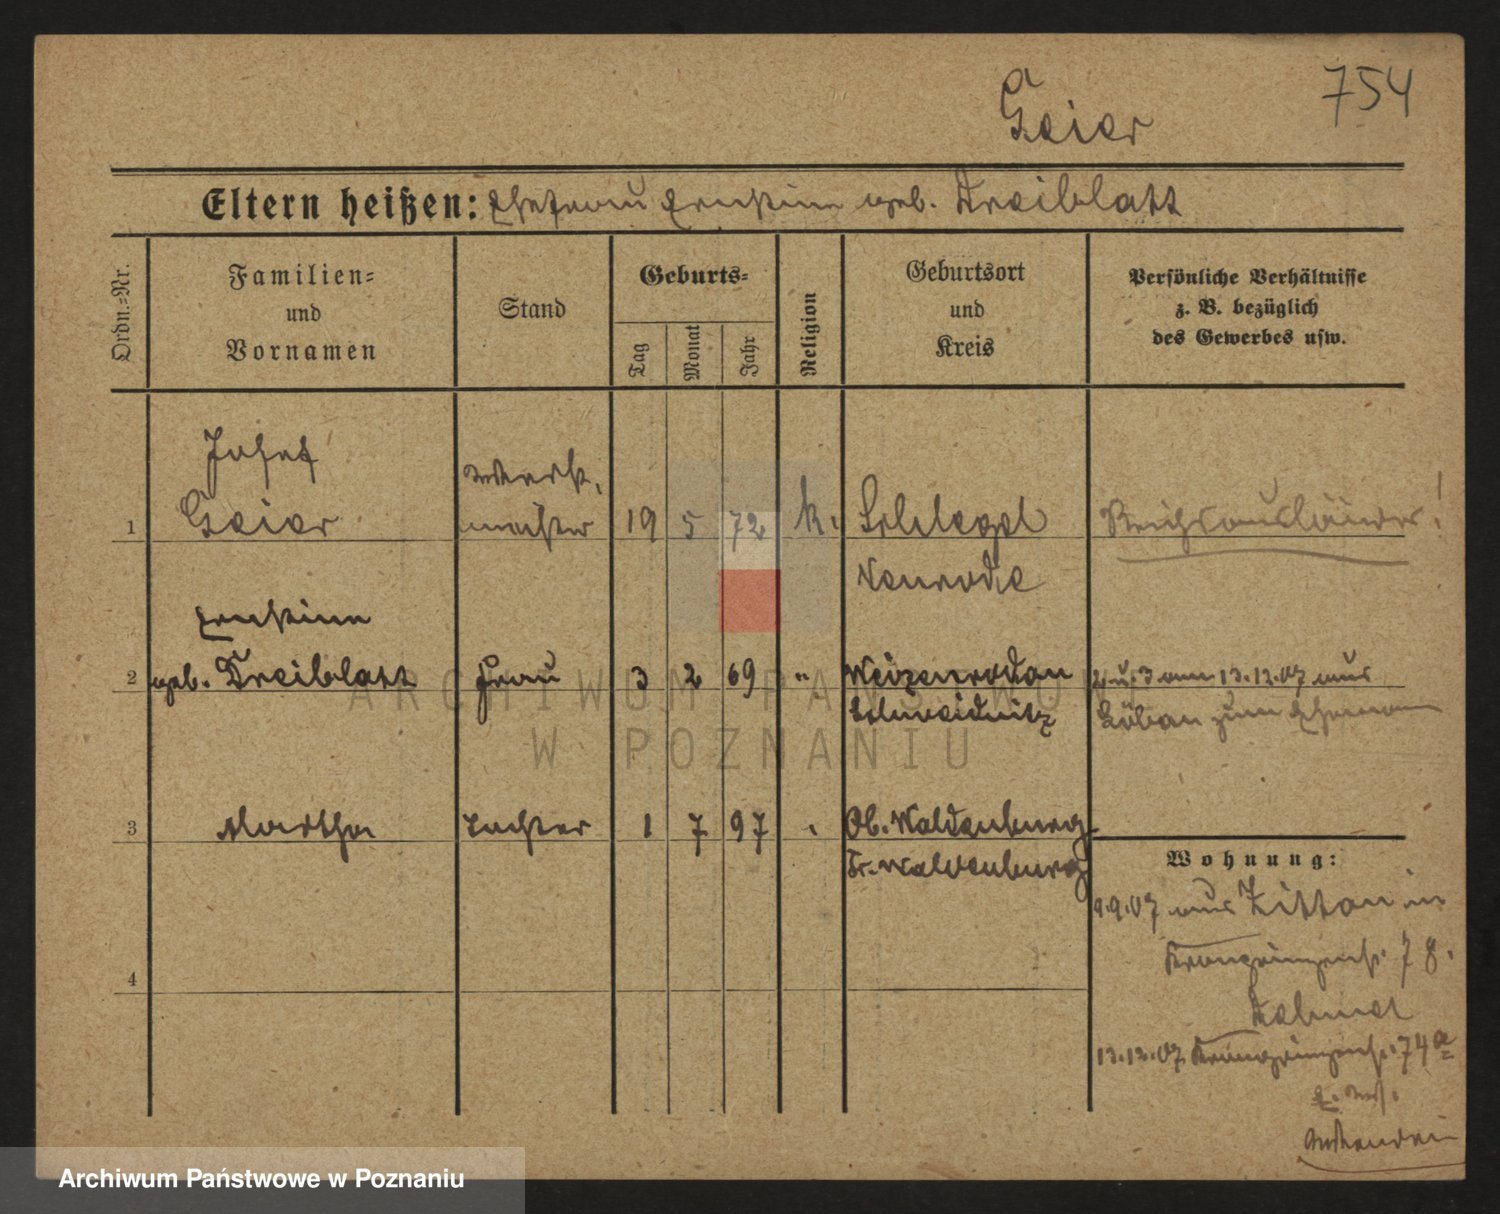 754
Geier
Eltern heißen: Ehefrau Ernstine geb. Dreiblatt
Ordn.-Nr.
Familien-
und
Vornamen
Stand
Geburts-
Tag
Monat
Jahr
Religion
Geburtsort
und
Kreis
Persönliche Verhältnisse
z. B. bezüglich
des Gewerbes usw.
Josef
Werk-
1 Geier meister 19 5 72 k. Schlegel Reichsausländer!
Neurode
Ernstine
2 geb. Dreiblatt Frau 3 2 69 " Weizenrodau 2 u. 3 am 13.12.07 aus
Schweidnitz Löbau zum Ehemann
3 Martha Tochter 1 7 97 " Ob. Waldenburg
Kr. Waldenburg
Wohnung:
9.9.07 aus Zittau in
Kronprinzenstr. 78.
4
13.12.07 Kronprinzenstr. 74a
ARCHIWUM PAŃSTWOWE
W POZNANIU
Archiwum Państwowe w Poznaniu